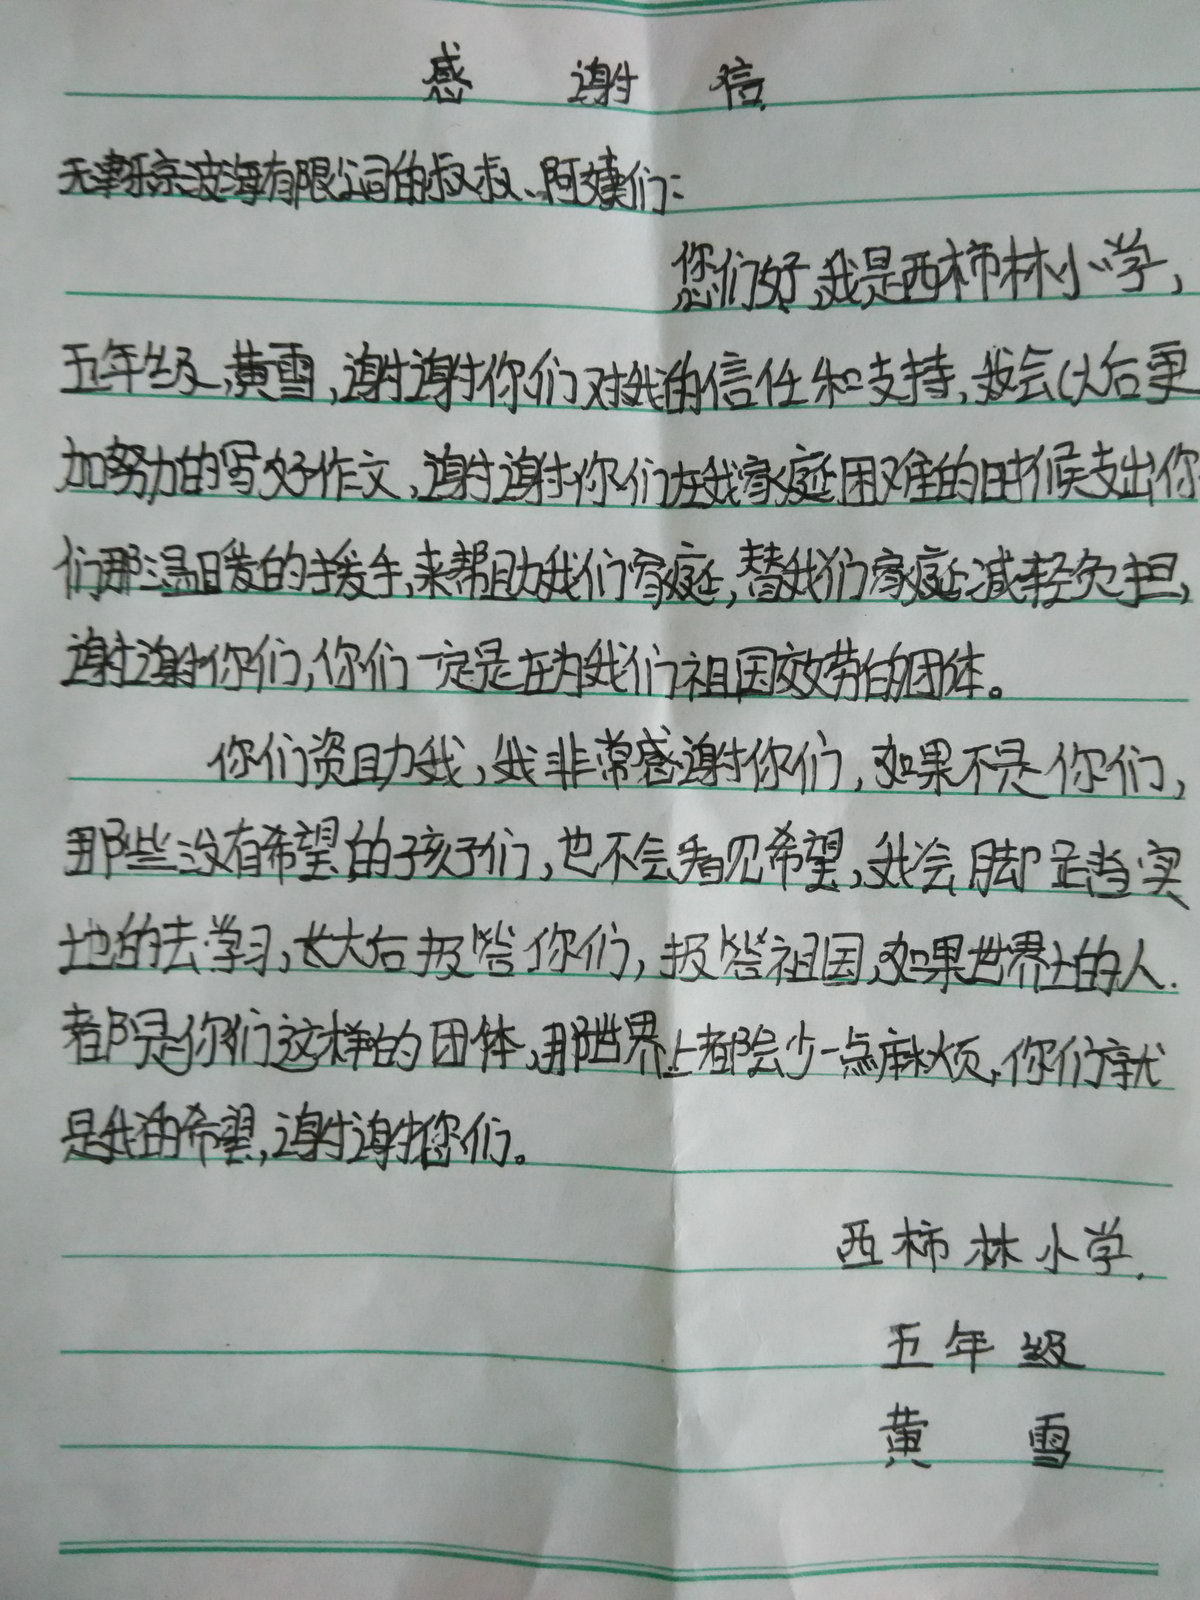 感谢信
天津乐京波海有限公司的叔叔、阿姨们：
您们好，我是西柿林小学，
五年级，黄雪，谢谢你们对我的信任和支持，我会以后更
加努力的写好作文，谢谢你们在我家庭困难的时候支出你
们那温暖的援手，来帮助我们家庭，替我们家庭减轻负担，
谢谢你们，你们一定是在为我们祖国效劳的团体。
你们资助我，我非常感谢你们，如果不是你们，
那些没有希望的孩子们，也不会看见希望，我会脚踏实
地的去学习，长大后报答你们，报答祖国，如果世界上的人.
都是你们这样的团体，那世界上都会少一点麻烦，你们就
是我的希望，谢谢您们。
西柿林小学.
五年级
黄雪